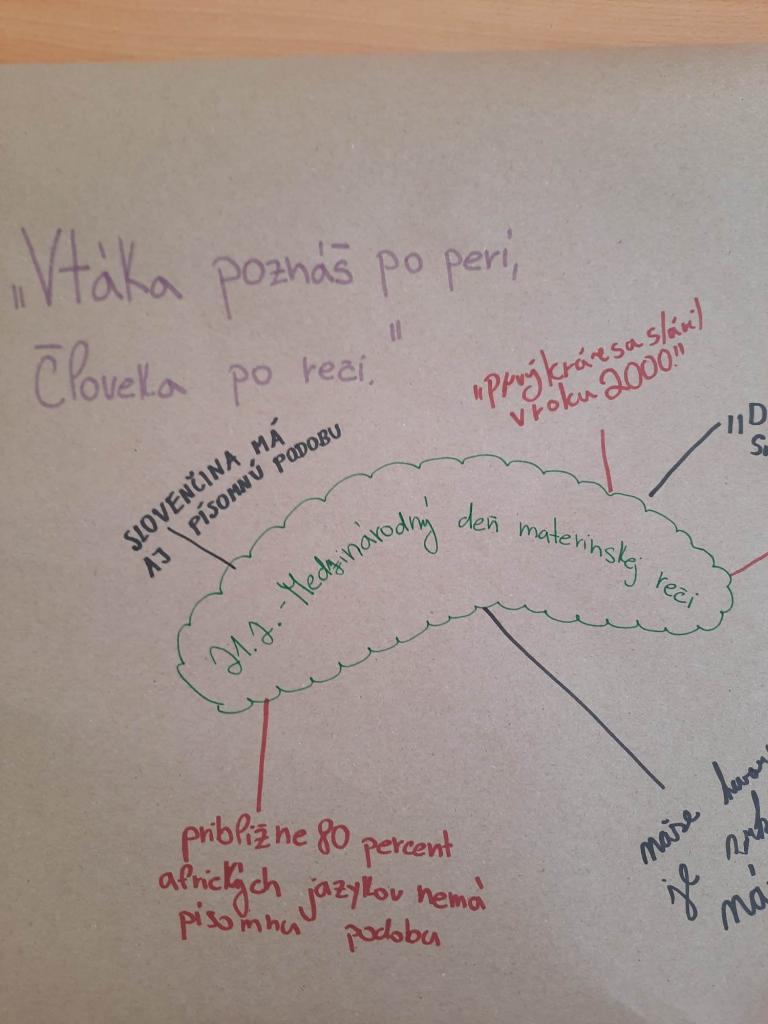 „Vtáka poznáš po perí,
Človeka po reči."
„prvýkrát sa slávil
v roku 2000."
SLOVENČINA MÁ
AJ PÍSOMNÚ PODOBU
„D
21.2.-Medzinárodný deň materinskej reči
približne 80 percent
afrických jazykov nemá
písomnu podobu
je